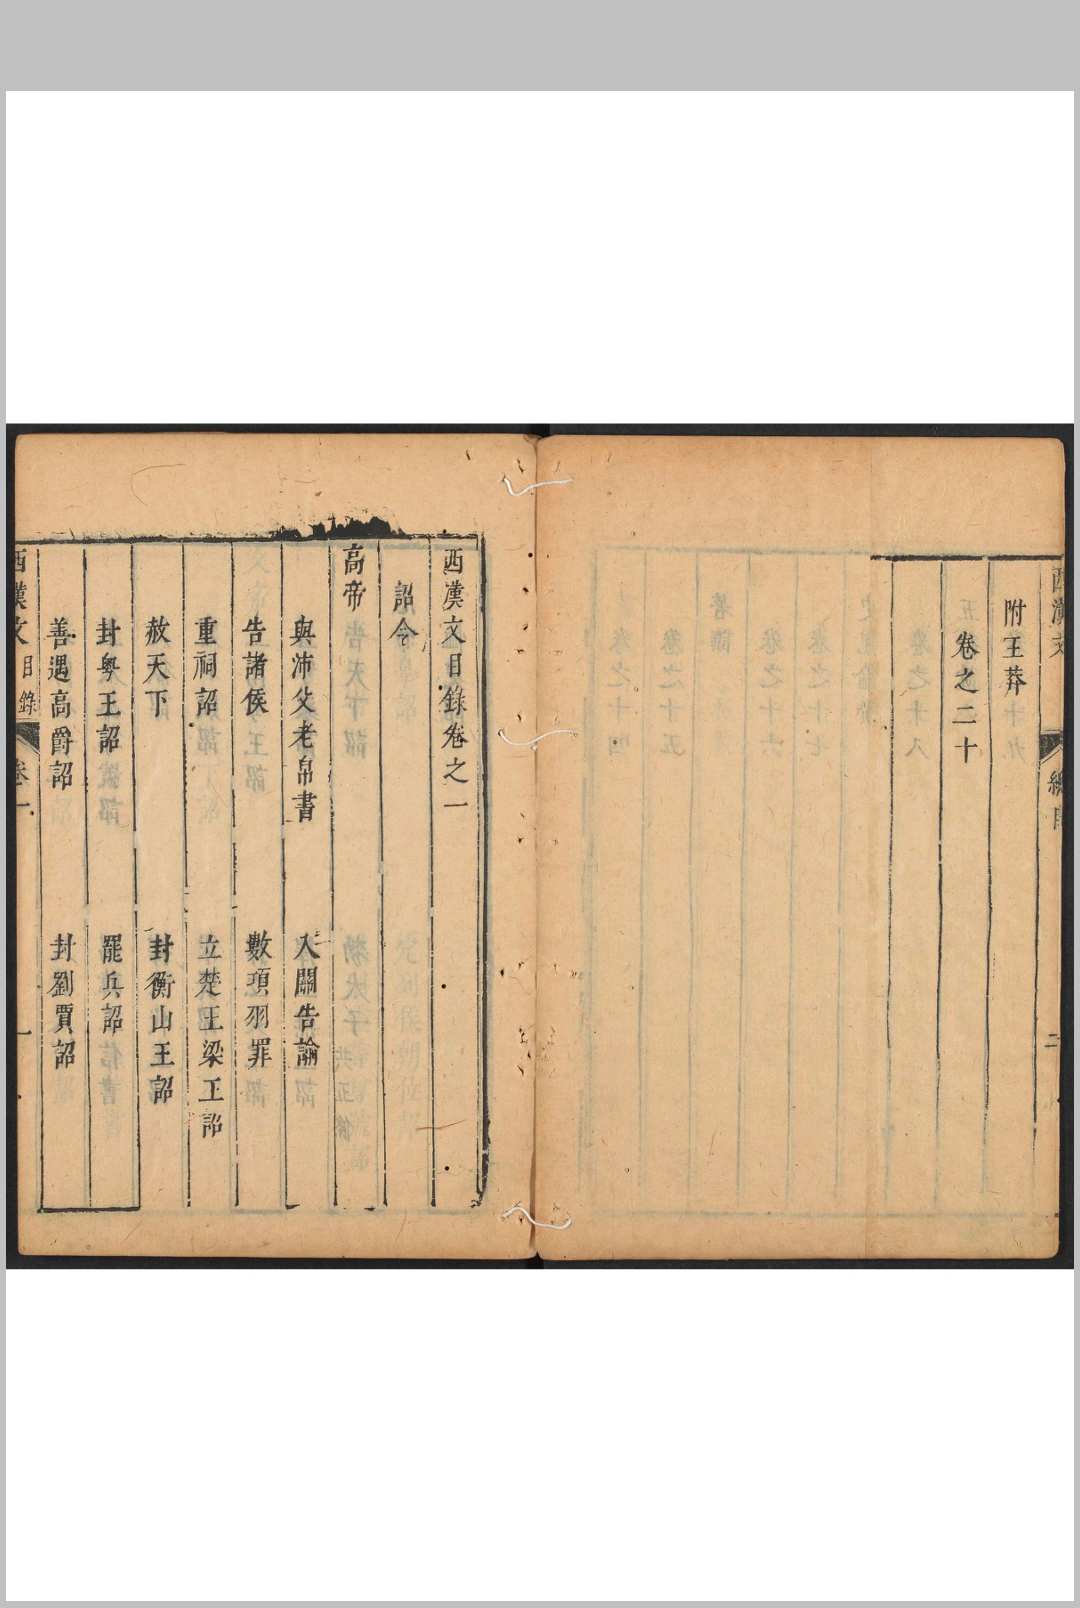 附王莽
卷之二十
西漢文
二
西漢文目錄卷之一
詔令
高帝
與沛父老帛書
入關告諭
告諸侯
數項羽罪
重祠詔
立楚王梁王詔
赦天下
封衡山王詔
封粤王詔
罷兵詔
善遇高爵詔
封劉賈詔
西漢文目錄
卷一
一